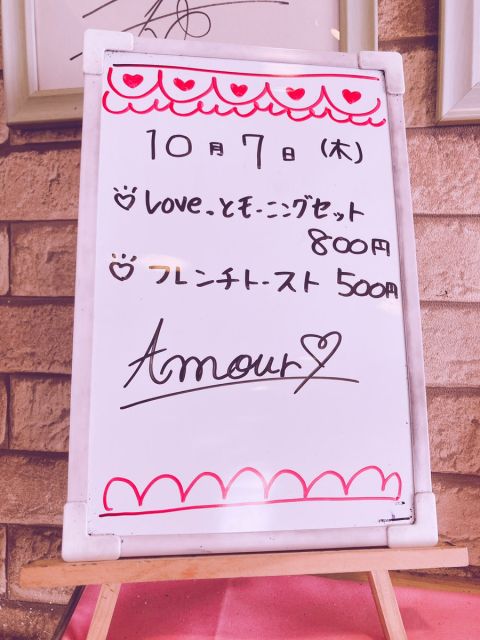 10月7日(木)
Love.とモーニングセット
800円
フレンチトースト 500円
Amour